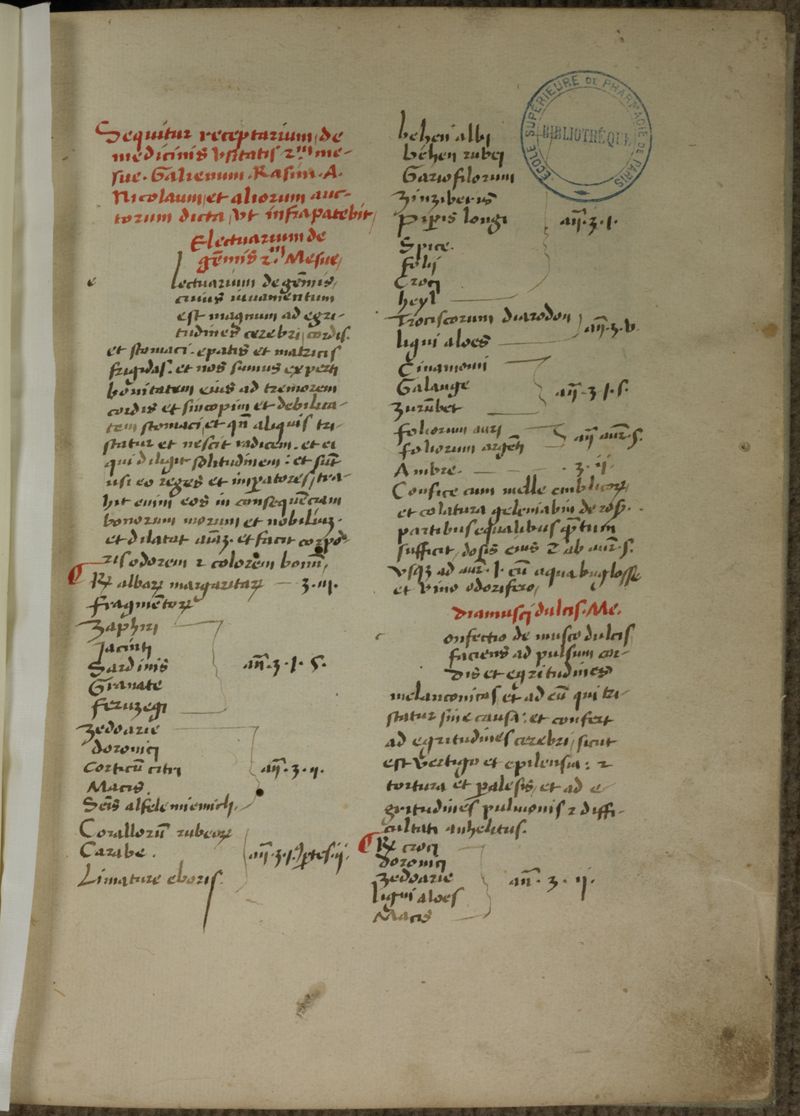 Sequitur receptarium de
medicinis vsitatis 2m me-
sue. Galienum. Rasim. A.
Nicolaum, et aliorum auc-
torum dicta, vt infra patebit,
Electuarium de
gēmis 2m Mesue,
e lectuarium de gēmis,
cuius iuuamentum
est magnum ad egri-
tudines cerebri, cordis.
et stomaci. epatis et matricis
frigidas. et nos sumus experti
bonitatem eius ad tremorem
cordis et sincopim et debilita-
tem stomaci, et qn̄ aliquis tri-
statur et nescit radicem. et ei
qui diligit solitudinem: et sūt
usi eo reges et imperatores, tra-
hit enim eos in consequēciam
bonorum morum et nobiliūꝫ.
et dilatat aīaꝫ. et facit corpo-
ris odorem 2 colorem bonū,
℞ albaꝝ margaritaꝝ — ʒ. iii.
fragmētoꝝ
zaphiri
Jacinti
Sardinis
Granate
feruzegi
añ. ʒ. 1. S.
zedoarie
doronici
corticū citri
Macis.
Seīs alfelemiemich,
añ. ʒ. ii.
Corallorū rubeoꝝ
Carabe.
Limature eboris.
añ. ʒ. 1. ꝑtes. ij.
behen albi
behen rubei
Gariofilorum
zinziberis
Piperis longi
Spice.
folij
Croci
heyl
añ. ʒ. 1.
Trociscorum diarodon
ligni aloes
añ. ʒ. v.
Cinamomi
Galange
zurūbet
añ. ʒ. 1. S.
foliorum auri
foliorum argēti
añ aur. S.
Ambre. — ʒ. ij.
Confice cum melle emblicoꝝ,
et colatura geleniabin de ros.
partibus equalibus q̄tum
sufficit, dosis eius 2 ab aur. S.
vsqꝫ ad aur. 1. cū aqua buglosse
et vino odorifero,
diamusci dulcis. Me.
c onfectio de musco dulcis
faciens ad pulsum cor-
dis et egritudines
melanconicas, et ad eū qui tri-
statur sine causa. et confert
ad egritudines cerebri, sicut
est vertigo et epilensia: 2
tortura et palesis, et ad e-
gritudines pulmonis 2 diffi-
cultati anhelitus.
℞ croci
doronici
zedoarie
ligni aloes
Macis
añ. ʒ. ij.
ÉCOLE SUPÉRIEURE DE PHARMACIE DE PARIS
BIBLIOTHÈQUE